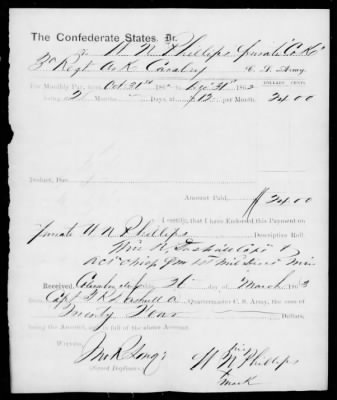 The Confederate States, Dr.
To W. N. Phillips, private "Co K"
3d Regt Ark Cavalry C. S. Army.
DOLLARS. CENTS.
For Monthly Pay, from Oct 31st 1862 to Dec 31st 1862
being 2 Months Days, at $12 per Month, 24.00
Deduct, Due
Amount Paid, $ 24.00
I certify, that I have Endorsed this Payment on
Private W N Phillips Descriptive Roll.
Wm Capt
Act chief qm 1st Dist
Received, Columbus this 26 day of March 1863
from Capt Quartermaster C. S. Army, the sum of
Twenty Four Dollars,
being the Amount, and in full of the above Account.
Witness,
(Signed Duplicate)
his
W N X Phillips
mark